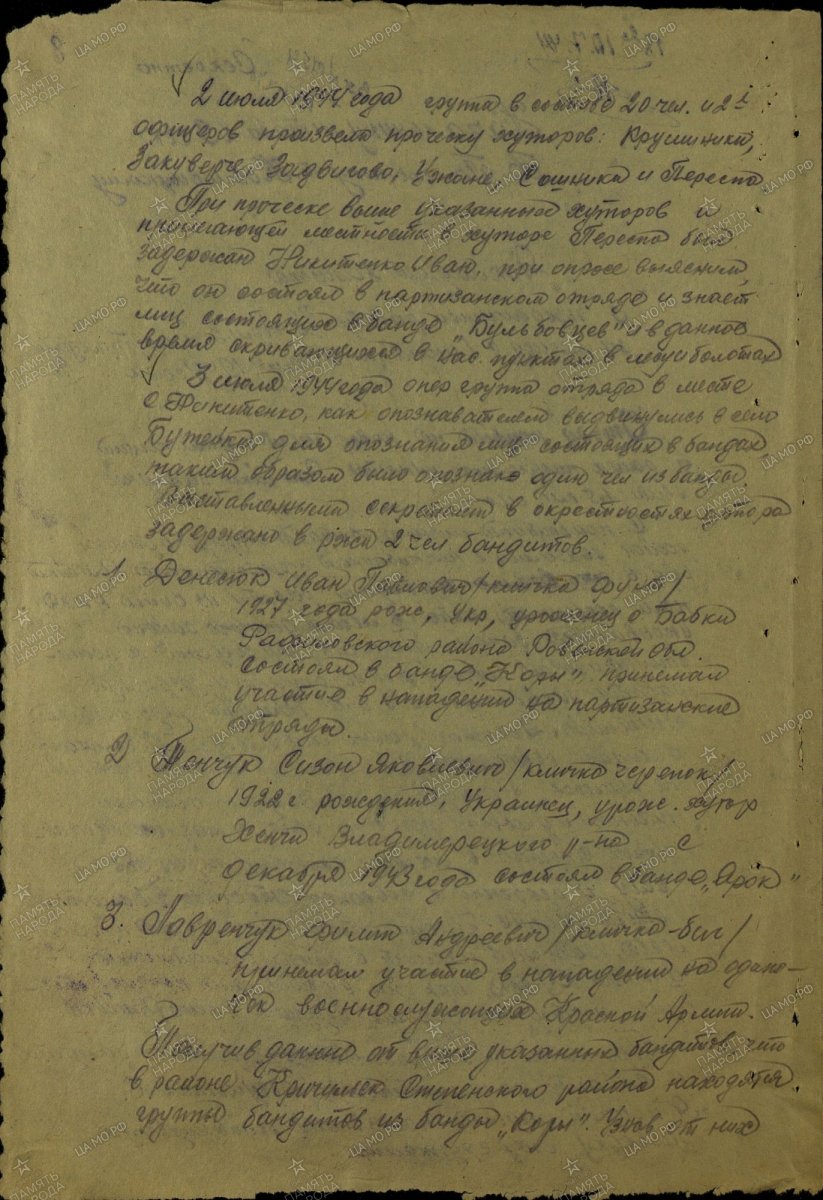 2 июля 1944 года группа в составе 20 чел. и 2х
офицеров произвела проческу хуторов: Крушники,
Закуверче, Задвигово, Ужане, Сошника и Переспа
При проческе выше указанных хуторов и
прилегающей местности в хуторе Переспа был
задержан Никитенко Иван, при опросе выяснили,
что он состоял в партизанском отряде и знает
лиц состоящих в банде „Бульбовцев" и в данное
время скривающихся в нас. пунктах в лесу и болотах
3 июля 1944 года опер группа отряда в месте
с Никитенко, как опознавателем выдвинулись в село
Бутейки, для опознания лиц состоящих в бандах,
таким образом было опознано один чел из банды.
Выставленными секретами в окрестностях хутора
задержано в ржи 2 чел бандитов.
1. Денесюк Иван Павлович /кличка
1927 года рож, укр, уроженец с Бабки
Рафаловского района Ровенской обл.
состоял в банде „Коры" принемал
участие в нападении на партизанские
отряды.
2) Тенчук Сизон Яковлевич /кличка черепок/
1922 г рождения, Украинец, урож. хутор
Хенчи Владимерецкого р-на с
декабря 1943 года состоял в банде „Ярок"
3. Гавренчук Филип Андреевич /кличка
принемал участие в нападении на одине-
чек военнослужащих Красной Армии.
Получив данные от выше указанных бандитов, что
в районе Кричильск Степенского района находятся
группы бандитов из банды „Коры". Узнав от них
ПАМЯТЬ НАРОДА
ЦАМО.РФ